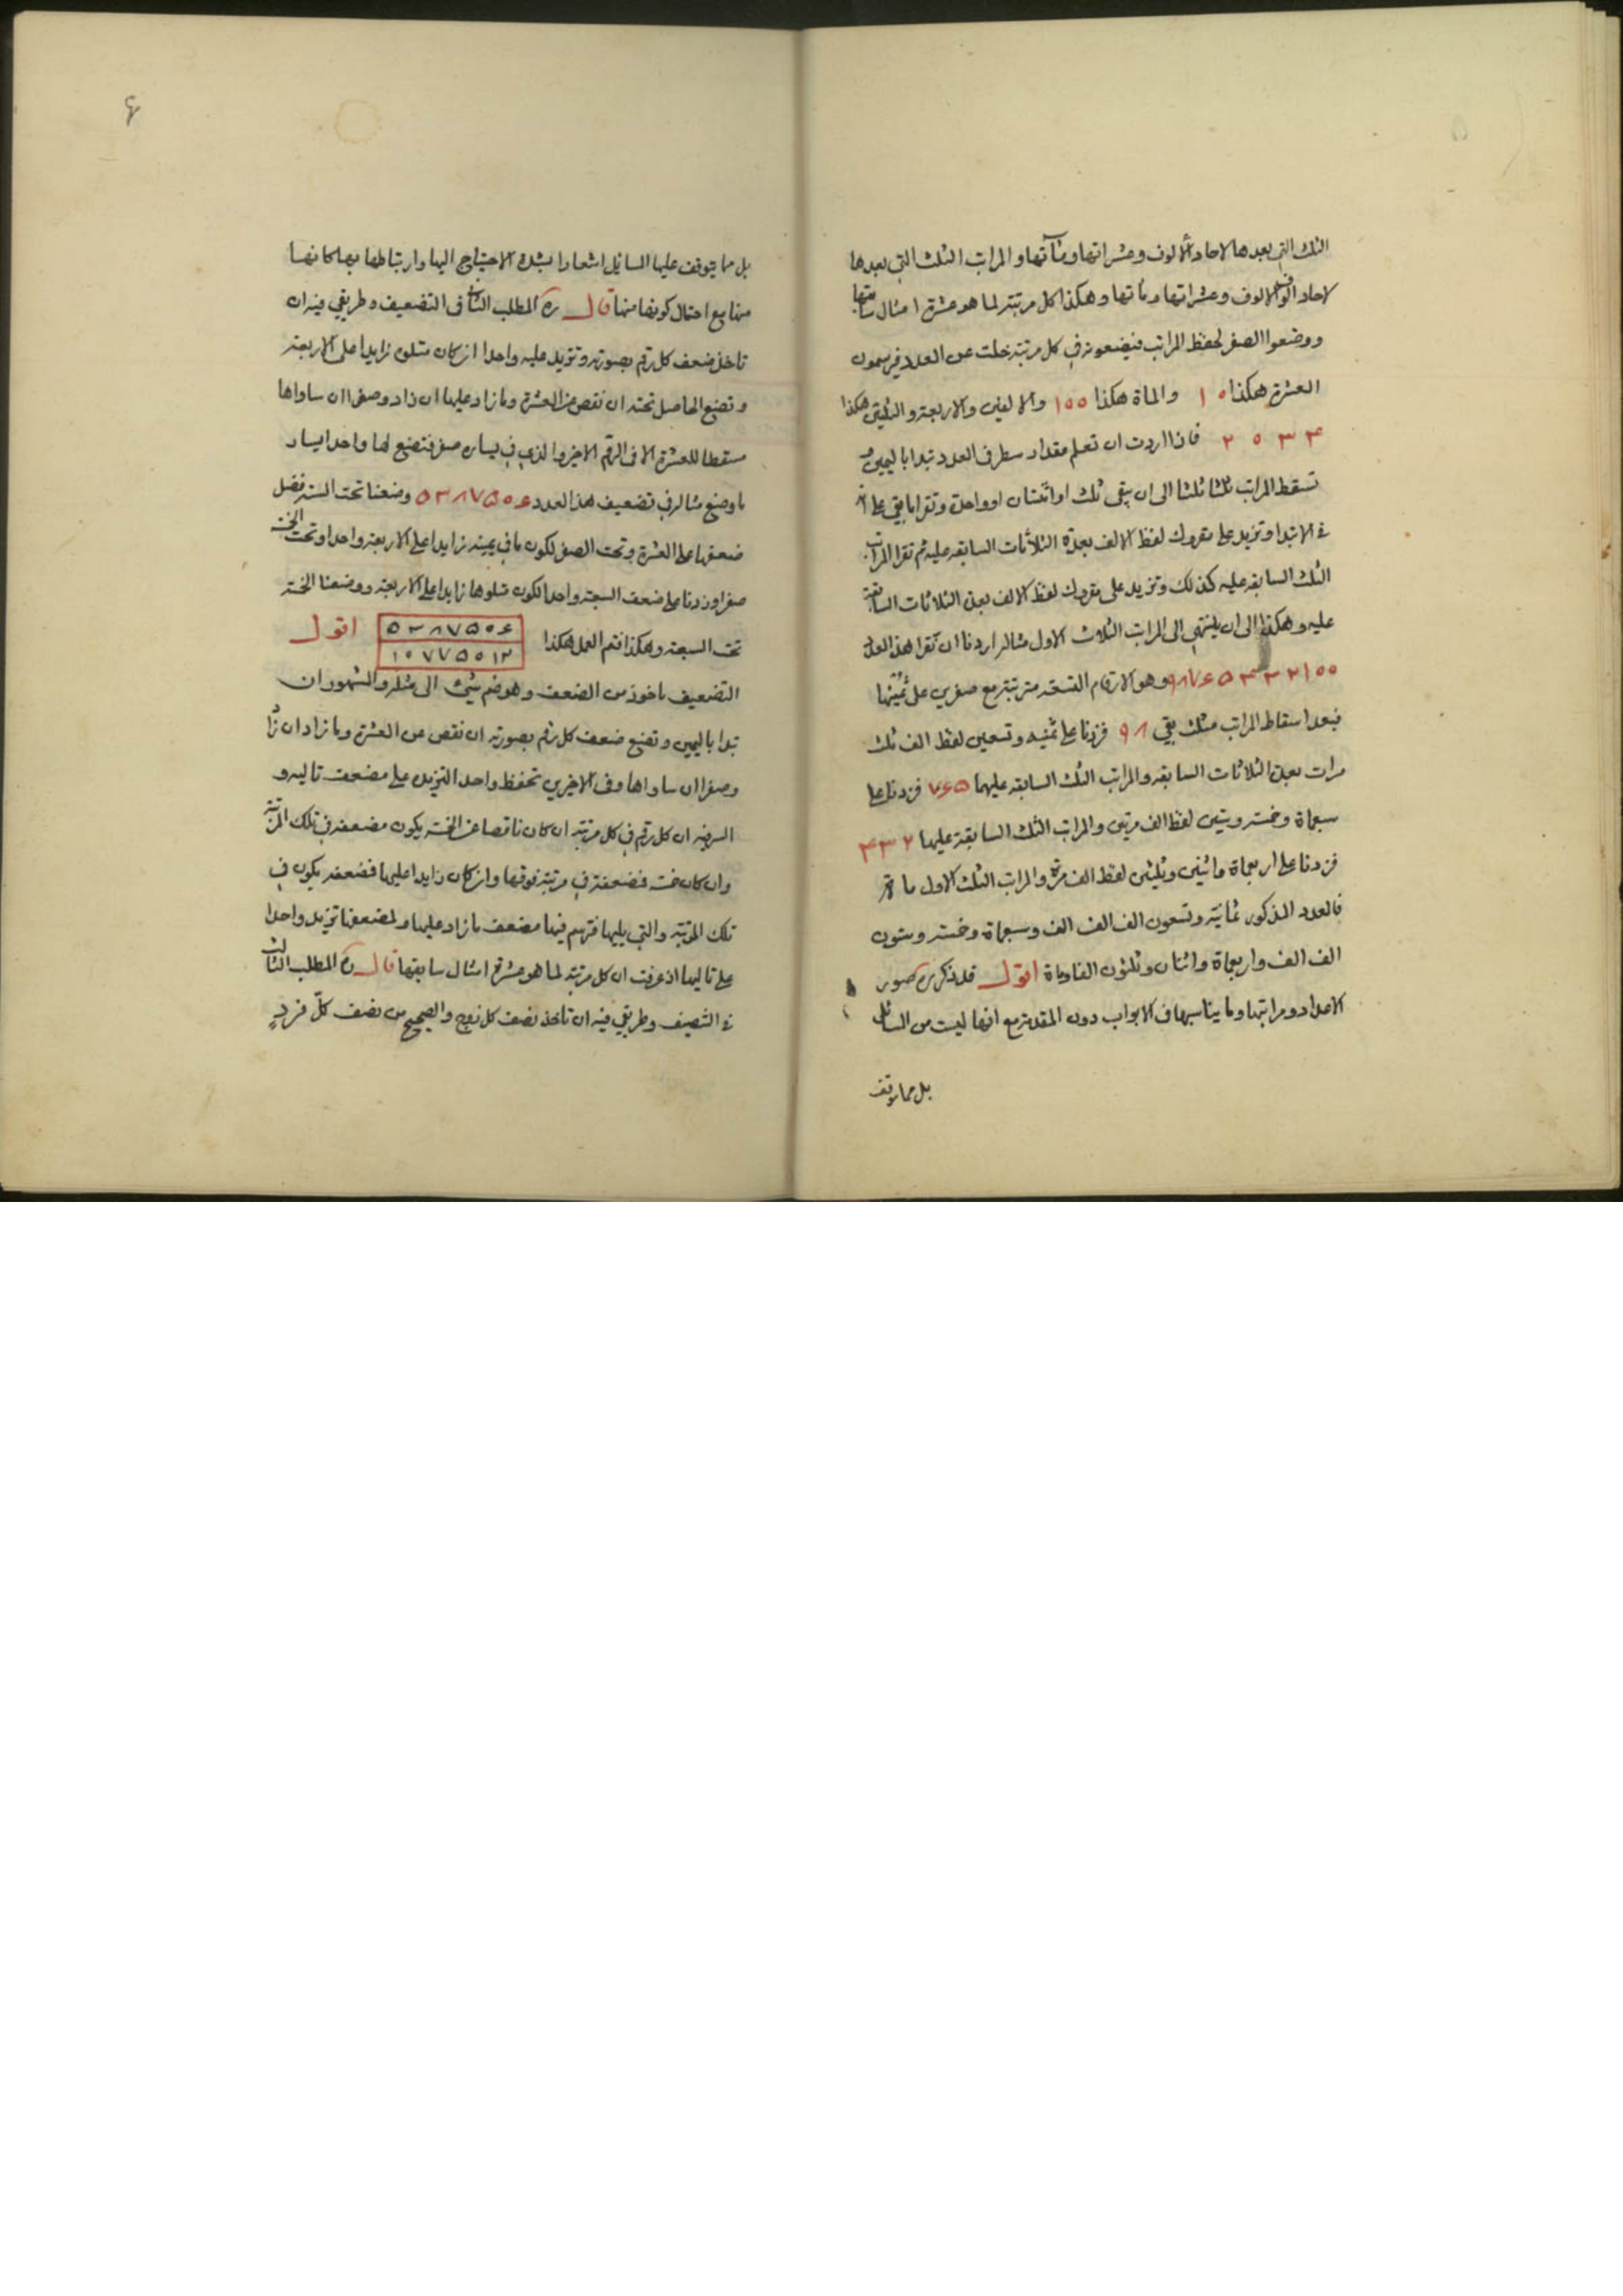 الثلث التي بعدها لاحاد الالوف وعشراتها ومآتها والمراتب الثلث التي بعدها
لاحاد الوف الالوف وعشراتها ومآتها وهكذا كل مرتبة لما هو عشرة امثال سابقتها
ووضعوا الصفر لحفظ المراتب فيضعونه في كل مرتبة خلت عن العدد فيرسمون
العشرة هكذا ١٥ والماة هكذا ١٥٥ والالفين والاربعة والثلثين هكذا
٢٥٣۴ فاذا اردت ان تعلم مقدار سطر في العدد تبدا باليمين و
تسقط المراتب ثلثا ثلثا الى ان يبقى ثلث او اثنتان او واحدة وتقرا ما بقي على
في الابتدا وتزيد على مقروك لفظ الالف بعدة الثلاثات السابقه عليه ثم تقرا المراتب
الثلث السابقه عليه كذلك وتزيد على مقروك لفظ الالف بعدة الثلاثات السابقة
عليه وهكذا الى ان ينتهي الى المراتب الثلاث الاول مثاله اردنا ان نقرا هذا العدد
٩٨٧۶۵۴۳۲۱٥٥ وهو الارقام التسعة مترتبة مع صفرين على يمينها
فبعد اسقاط المراتب مثلث بقي ٩٨ فزدنا على ثمنيه وتسعين لفظ الف ثلث
مرات بعدة الثلاثات السابقه والمراتب الثلث السابقه عليهما ٧۶۵ فزدنا على
سبعماة وخمسه وستين لفظ الف مرتين والمراتب الثلث السابقة عليها ۴۳۲
فزدنا على اربعماة واثنين وثلثين لفظ الف مرة والمراتب الثلث الاول ماة
فالعدد المذكور ثمانية وتسعون الف الف الف وسبعماة وخمسه وستون
الف الف واربعماة واثنان وثلثون الفا وماة اقول قد ذكر ره صور
الاعداد ومراتبها وما يناسبها في الابواب دون المقدمة مع انها ليست من المسائل
بل مما يتوقف
۴
بل مما يتوقف عليها المسائل اشعارا بشدة الاحتياج اليها وارتباطها بها كانها
منها مع احتمال كونها منها قال ره المطلب الثاني في التضعيف وطريقي فيه ان
تاخذ ضعف كل رقم بصورته وتزيد عليه واحدا ان كان متلوه زايدا على الاربعة
وتضع الحاصل تحته ان نقص من العشرة وما زاد عليها ان زاد وصفرا ان ساواها
مسقطا للعشرة الا في الرقم الاخير والذي في يساره صفر فتضع لها واحدا يساره
ما وضع مثاله في تضعيف هذا العدد ۵۳۸۷۵٥۶ وضعنا تحت الستة فضل
ضعفها على العشرة وتحت الصفر لكون ما في يمينه زايدا على الاربعة واحدا وتحت الخمسة
صفرا وزدنا على ضعف السبعة واحدا لكون متلوها زايدا على الاربعة ووضعنا الخمسة
تحت السبعة وهكذا فتم العمل هكذا
۵۳۸۷۵٥۶
١٥٧٧۵٥١٢
اقول
التضعيف ماخوذ من الضعف وهو ضم شئ الى مثله والمشهور ان
تبدا باليمين وتضع ضعف كل رقم بصورته ان نقص من العشرة وما زاد ان زاد
وصفرا ان ساواها وفي الاخيرين تحفظ واحدا لتزيده على مضعف تاليه و
السر فيه ان كل رقم في كل مرتبة ان كان ناقصا عن الخمسة يكون مضعفه في تلك المرتبة
وان كان خمسة فضعفه في مرتبة فوقها وان كان زايدا عليها فضعفه يكون في
تلك المرتبة والتي يليها فترسم فيها مضعف ما زاد عليها ولمضعفها تزيد واحدا
على تاليها اذ عرفت ان كل مرتبة لما هو عشرة امثال سابقتها قال ره المطلب الثالث
في التنصيف وطريقي فيه ان تاخذ نصف كل زوج والصحيح من نصف كلّ فردٍ